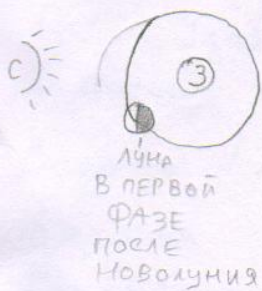 С
З
ЛУНА
В ПЕРВОЙ
ФАЗЕ
ПОСЛЕ
НОВОЛУНИЯ